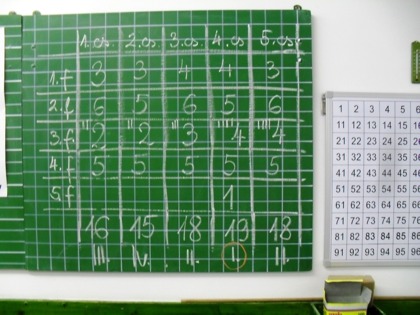 1.cs. 2.cs. 3.cs. 4.cs 5.cs.
1.f 3 3 4 4 3
2.f 6 5 6 5 6
3.f 2 2 3 4 4
4.f 5 5 5 5 5
5.f 1
16 15 18 19 18
III. IV. II. I. II.
1 2 3 4 5 6
11 12 13 14 15 16
21 22 23 24 25 26
31 32 33 34 35 36
41 42 43 44 45 46
51 52 53 54 55 56
61 62 63 64 65 66
71 72 73 74 75 76
81 82 83 84 85 86
91 92 93 94 95 96